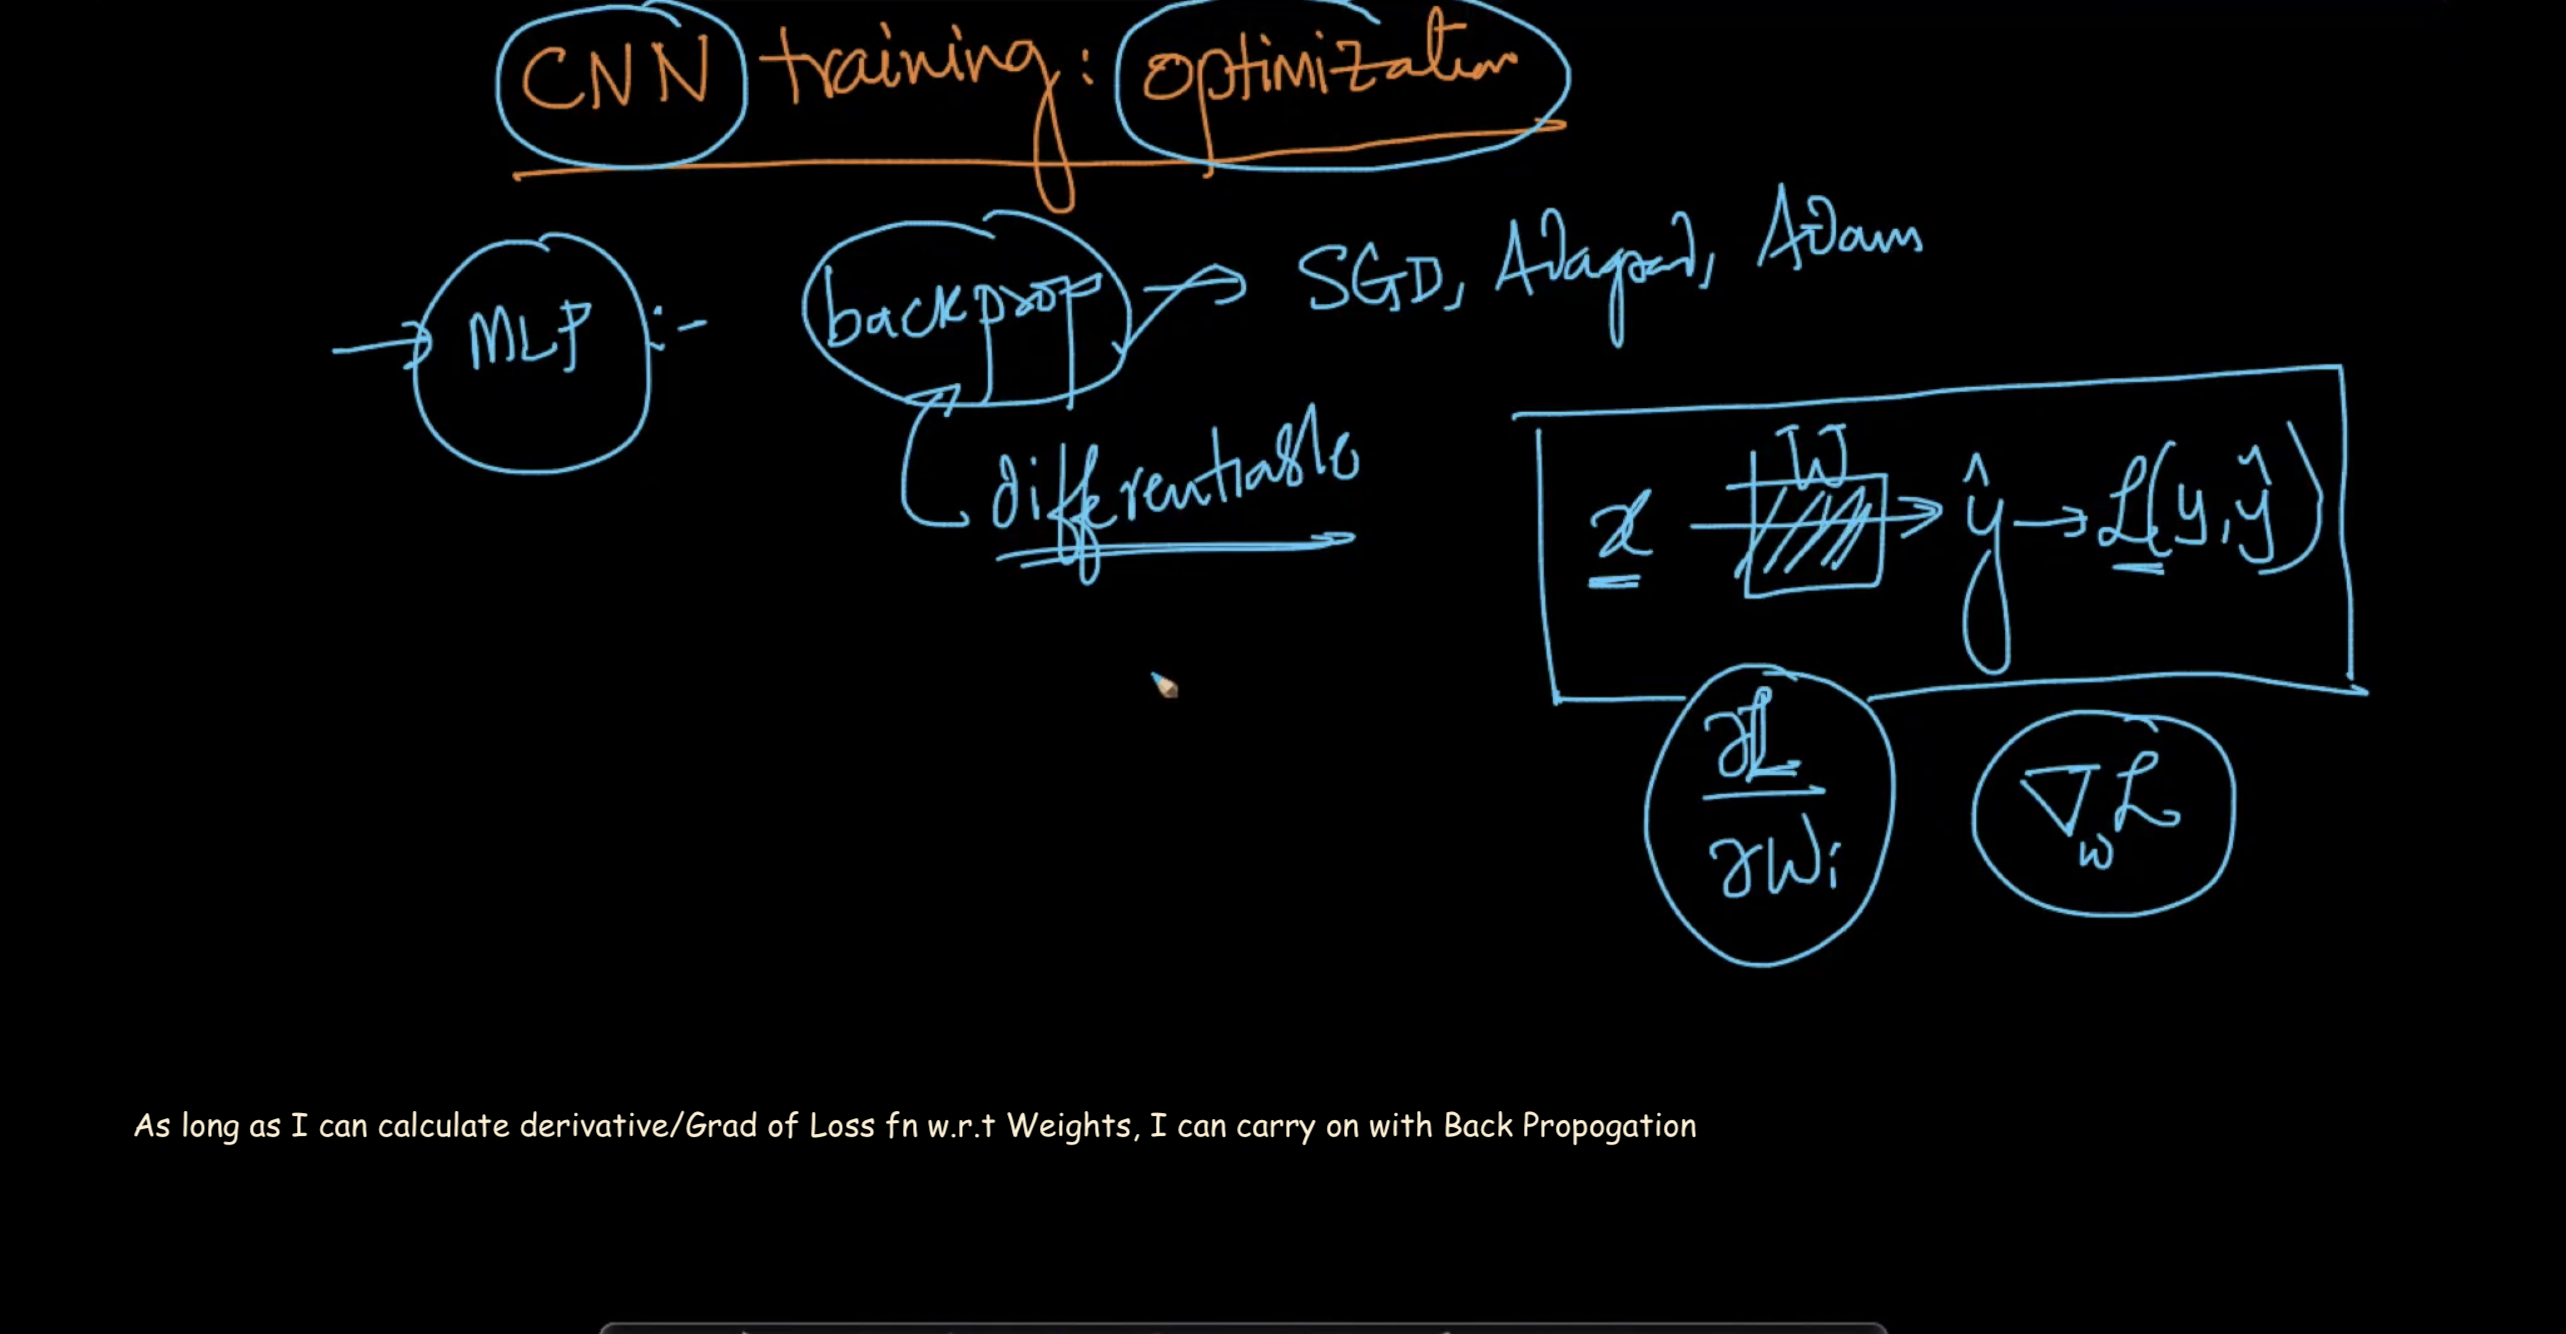 CNN training: optimization
MLP :- backprop → SGD, Adagrad, Adam
differentiable
x → W → ŷ → L(y, ŷ)
∂L/∂Wi
∇w L
As long as I can calculate derivative/Grad of Loss fn w.r.t Weights, I can carry on with Back Propogation